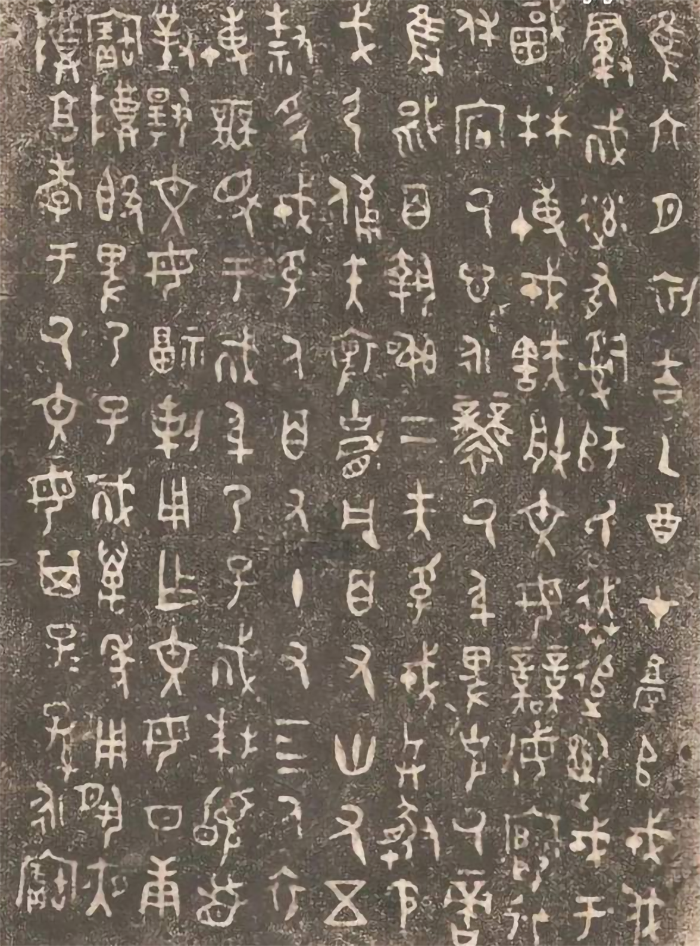 隹六月初吉乙酉才𠂤戎伐
𢦚率有𤔲師氏奔追戎于
棫林博戎𫊣朕文母競敏行
休宕厥心永襲厥身卑克厥啻
隻馘百執訊二夫孚戎兵盾矛
戈弓備矢裨胄凡百又卅又五
孚戎孚人百又十又四人衣
博無眔于𢦚身乃子𢦚拜稽首
對揚文母福剌用乍文母日庚
寶尊簋卑乃子𢦚萬年用夙夜
尊享孝于厥文母其子子孫孫永寶